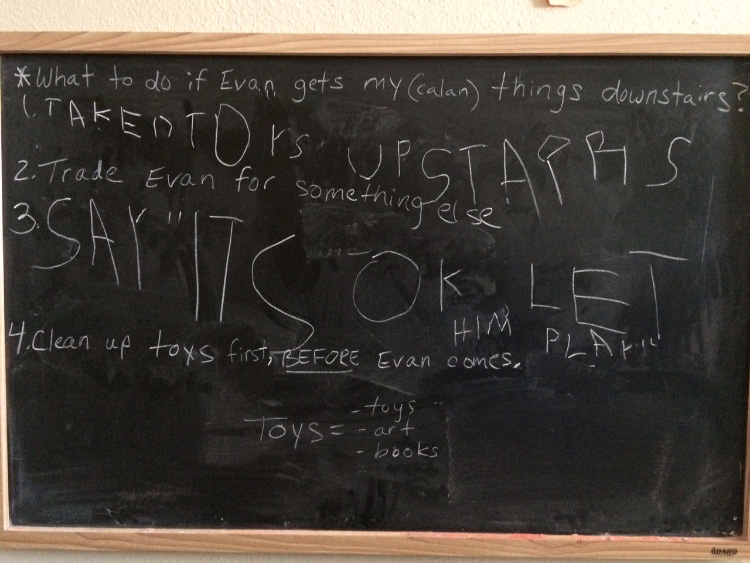 *What to do if Evan gets my (calan) things downstairs?
1. TAKE TOYS UPSTARRS
2. Trade Evan for something else
3. SAY "ITS OK LET
HIM PLAY"
4. Clean up toys first, BEFORE Evan comes.
Toys = - toys
- art
- books